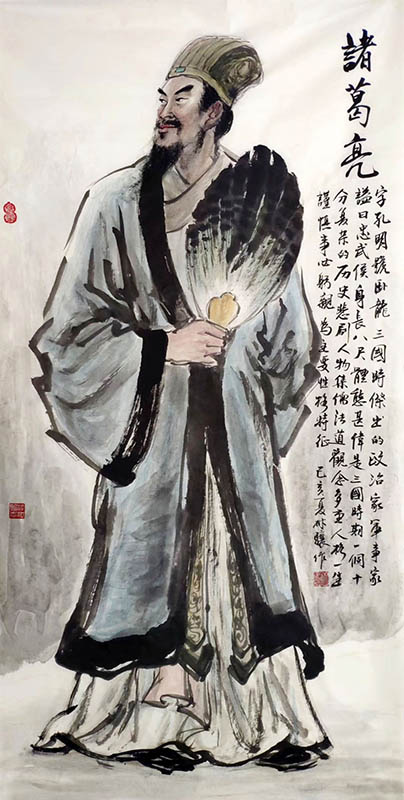 諸葛亮
字孔明號卧龍三國時傑出的政治家軍事家
諡曰忠武侯身長八尺體態甚偉是三國時期一個十
分复杂的历史悲剧人物儒法道觀念多重人格一生
謹慎事必躬親為主要性格特征
己亥夏作